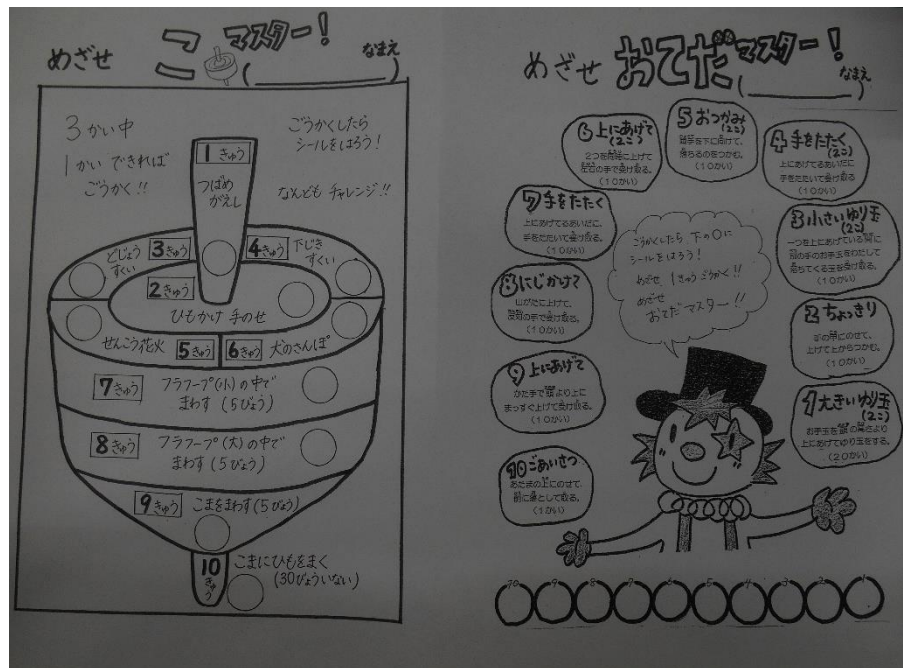 めざせ こま マスター!
なまえ
(　　　　　)
3かい中
1かい できれば
ごうかく!!
ごうかくしたら
シールをはろう!
なんども チャレンジ!!
1きゅう
つばめ
がえし
どじょう
すくい
3きゅう
4きゅう
下じき
すくい
2きゅう
ひもかけ 手のせ
せんこう花火
5きゅう
6きゅう
犬のさんぽ
7きゅう
フラフープ(小)の中で
まわす(5びょう)
8きゅう
フラフープ(大)の中で
まわす(5びょう)
9きゅう
こまをまわす(5びょう)
10きゅう
こまにひもをまく
(30びょういない)
めざせ おてだマスター!
なまえ
(　　　　　)
6 上にあげて
(2こ)
2つを同時に上げて
左右の手で受け取る
(10かい)
5 おつかみ
(2こ)
両手を下に向けて、
落ちるのをつかむ。
(10かい)
4 手をたたく
(2こ)
上にあげてるあいだに
手をたたいて受け取る
(10かい)
7 手をたたく
上にあげてるあいだに、
手をたたいて受け取る。
(10かい)
3 小さいゆり玉
(2こ)
一つを上にあげている間に
別の手のお手玉をわたして
落ちてくる玉を受け取る。
(10かい)
ごうかくしたら、下の〇に
シールをはろう!
めざせ、1きゅうごうかく!!
めざせ
おてだマスター!!
8 にじかけて
山がたに上げて、
反対の手で受け取る。
(10かい)
2 ちょっきり
手の甲にのせて、
上げて上からつかむ。
(10かい)
9 上にあげて
かた手で頭より上に
まっすぐ上げて受け取る。
(10かい)
1 大きいゆり玉
(2こ)
お手玉を頭の高さより
上にあげてゆり玉をする。
(20かい)
10 ごあいさつ
あたまの上にのせて、
前に落として取る。
(1かい)
10 9 8 7 6 5 4 3 2 1